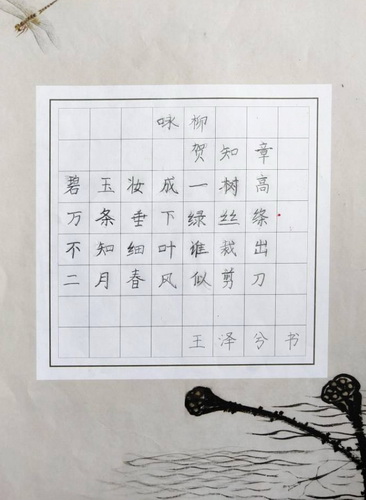 咏柳
贺知章
碧玉妆成一树高
万条垂下绿丝绦
不知细叶谁裁出
二月春风似剪刀
王泽兮书